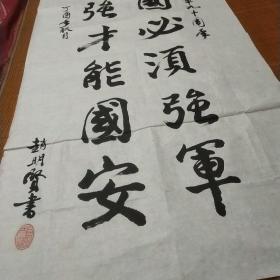 國必須強軍
強才能國安
年九十周年
丁酉年秋月
趙明賢書